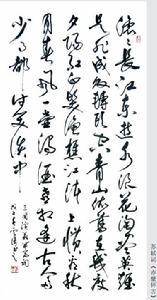 滚滚长江东逝水浪花淘尽英雄
是非成败转头空青山依旧在几度
夕阳红白发渔樵江渚上惯看秋
月春风一壶浊酒喜相逢古今多
少事都付笑谈中
三国演义开篇词
苏轼词《赤壁怀古》